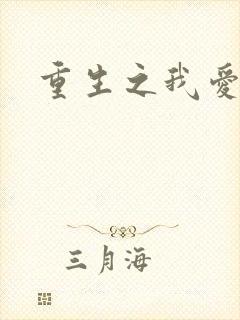 重生之我爱
三月海